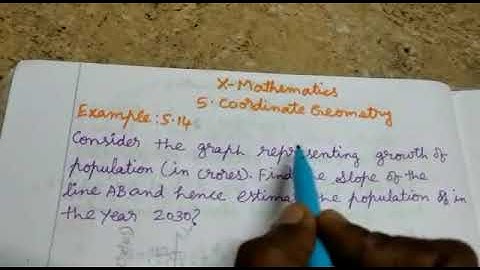 X-Mathematics
5. Coordinate Geometry
Example: 5.14
Consider the graph representing growth of
population (in crores). Find the slope of the
line AB and hence estimate the population of in
the year 2030?